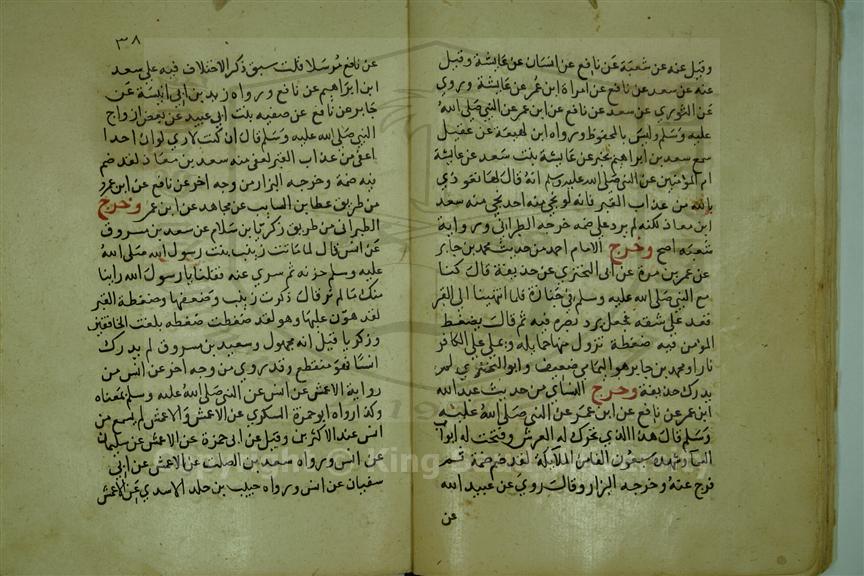 وقيل عنه عن شعبة عن نافع عن انسان عن عايشة وقيل
عنه عن سعد عن نافع عن امراة ابن عمر عن عايشة وروي
عن الثوري عن سعد عن نافع عن ابن عمر عن النبي صلى الله
عليه وسلم وليس بالمحفوظ ورواه ابن لهيعة عن عقيل
سمع سعد بن ابراهيم يخبر عن عايشة بنت سعد عن عايشة
ام المؤمنين عن النبي صلى الله عليه وسلم انه قال لها تعوذي
بالله من عذاب القبر فانه لو نجى منه احد نجى منه سعد
ابن معاذ لكنه لم يزد على ضمه خرجه الطبراني ورواية
شعبة اصح وخرج الامام احمد من حديث محمد بن جابر
عن عمرو بن مرة عن ابي البختري عن حذيفة قال كنا
مع النبي صلى الله عليه وسلم في جنازة فلما انتهينا الى القبر
قعد على شقته فجعل يردد بصره فيه ثم قال يضغط
المؤمن فيه ضغطة تزول منها حمايله ويملى على الكافر
نارا ومحمد بن جابر هو اليمامي ضعيف وابو البختري لم
يدرك حذيفة وخرج النساي من حديث عبد الله
ابن عمر عن نافع عن ابن عمر عن النبي صلى الله عليه
وسلم قال هذا الذي تحرك له العرش وفتحت له ابواب
السماء وشهده سبعون الفا من الملايكة لقد ضم ضمة ثم
فرج عنه وخرجه البزار وقال روي عن عبيد الله
عن
٣٨
عن نافع مرسلا قلت سبق ذكر الاختلاف فيه على سعد
ابن ابراهيم عن نافع ورواه زيد بن ابي انيسة عن
جابر عن نافع عن صفيه بنت ابي عبيد عن بعض ازواج
النبي صلى الله عليه وسلم قال ان كنت لاري لو ان احدا
اعفي من عذاب القبر لعفي منه سعد بن معاذ لقد ضم
فيه ضمة وخرجه البزار من وجه اخر عن نافع عن ابن عمر و
من طريق عطا بن السايب عن مجاهد عن ابن عمر وخرج
الطبراني من طريق زكريا بن سلام عن سعد بن مسروق
عن انس قال لما ماتت زينب بنت رسول الله صلى الله
عليه وسلم حزنه ثم سري عنه فقلنا يا رسول الله راينا
منك ما لم نر قال ذكرت زينب وضعفها وضغطة القبر
لقد هون عليها وهو لقد ضغطت ضغطه بلغت الخافقين
وزكريا قيل انه مجهول وسعيد بن مسروق لم يدرك
انسا فهو منقطع وقد روي من وجه اخر عن انس من
رواية الاعمش عن انس عن النبي صلى الله عليه وسلم بمعناه
وكذا رواه ابو حمزة السكري عن الاعمش والاعمش لم يسمع من
انس عند الاكثرين وقيل عن ابي حمزة عن الاعمش عن سليمان
عن انس ورواه سعد بن الصلت عن الاعمش عن ابي
سفيان عن انس ورواه حبيب بن خالد الاسدي عن الاعمش